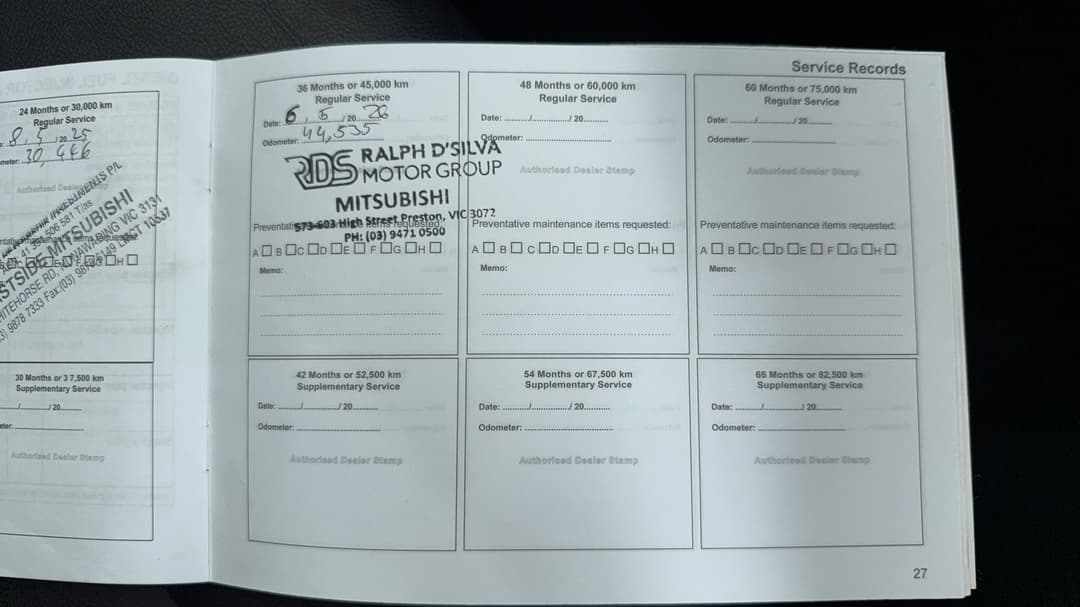 24 Months or 30,000 km
Regular Service
8, 5 /20 25
30, 446
Authorised Dealer
506 581 T/as
MITSUBISHI
VIC 3131
9878 7333 Fax:(03)
H
30 Months or 37,500 km
Supplementary Service
/ /20
Authorised Dealer Stamp
Service Records
36 Months or 45,000 km
Regular Service
Date: 6, 5 /20 26
Odometer: 44,535
RDS RALPH D'SILVA
MOTOR GROUP
MITSUBISHI
573-603 High Street Preston, VIC 3072
PH: (03) 9471 0500
A B C D E F G H
Memo:
48 Months or 60,000 km
Regular Service
Date: / / 20
Odometer:
Authorised Dealer Stamp
Preventative maintenance items requested:
A B C D E F G H
Memo:
60 Months or 75,000 km
Regular Service
Date: / / 20
Odometer:
Authorised Dealer Stamp
Preventative maintenance items requested:
A B C D E F G H
Memo:
42 Months or 52,500 km
Supplementary Service
Date: / / 20
Odometer:
Authorised Dealer Stamp
54 Months or 67,500 km
Supplementary Service
Date: / / 20
Odometer:
Authorised Dealer Stamp
66 Months or 82,500 km
Supplementary Service
Date: / / 20
Odometer:
Authorised Dealer Stamp
27